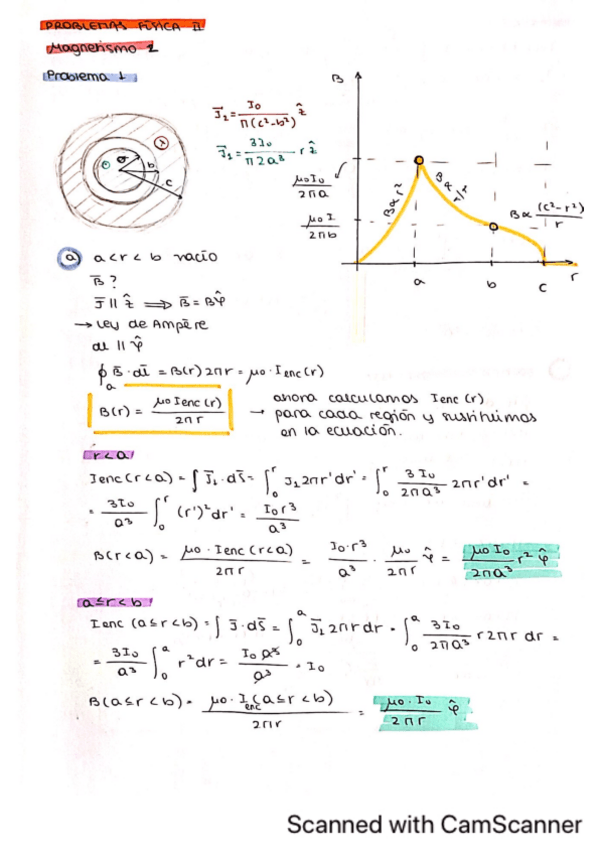 PROBLEMAS FÍSICA II
Magnetismo 2
Problema 1
J̄₂ = I₀ / π(c²-b²) ẑ
J̄₁ = 3I₀ / π2a³ r ẑ
a
b
c
B
μ₀I₀ / 2πa
μ₀I / 2πb
B∝r²
B∝ 1/r
B∝ (c²-r²) / r
a b c r
a) a<r<b vacío
B̄?
J̄ || ẑ ⟹ B̄ = Bφ̂
→ Ley de Ampère
dl̄ || φ̂
∮ₐ B̄·dl̄ = B(r)2πr = μ₀·Ienc(r)
B(r) = μ₀Ienc(r) / 2πr
→ ahora calculamos Ienc(r)
para cada región y sustituimos
en la ecuación.
r<a
Ienc(r<a) = ∫ J̄₁·ds̄ = ∫₀ʳ J₁2πr'dr' = ∫₀ʳ 3I₀ / 2πa³ 2πr'dr' =
= 3I₀ / a³ ∫₀ʳ (r')²dr' = I₀r³ / a³
B(r<a) = μ₀·Ienc(r<a) / 2πr = I₀·r³ / a³ · μ₀ / 2πr φ̂ = μ₀I₀ / 2πa³ r² φ̂
a≤r<b
Ienc(a≤r<b) = ∫ J̄·ds̄ = ∫₀ᵃ J̄₁2πrdr = ∫₀ᵃ 3I₀ / 2πa³ r2πr dr =
= 3I₀ / a³ ∫₀ᵃ r²dr = I₀a³ / a³ = I₀
B(a≤r<b) = μ₀·Ienc(a≤r<b) / 2πr = μ₀·I₀ / 2πr φ̂
Scanned with CamScanner